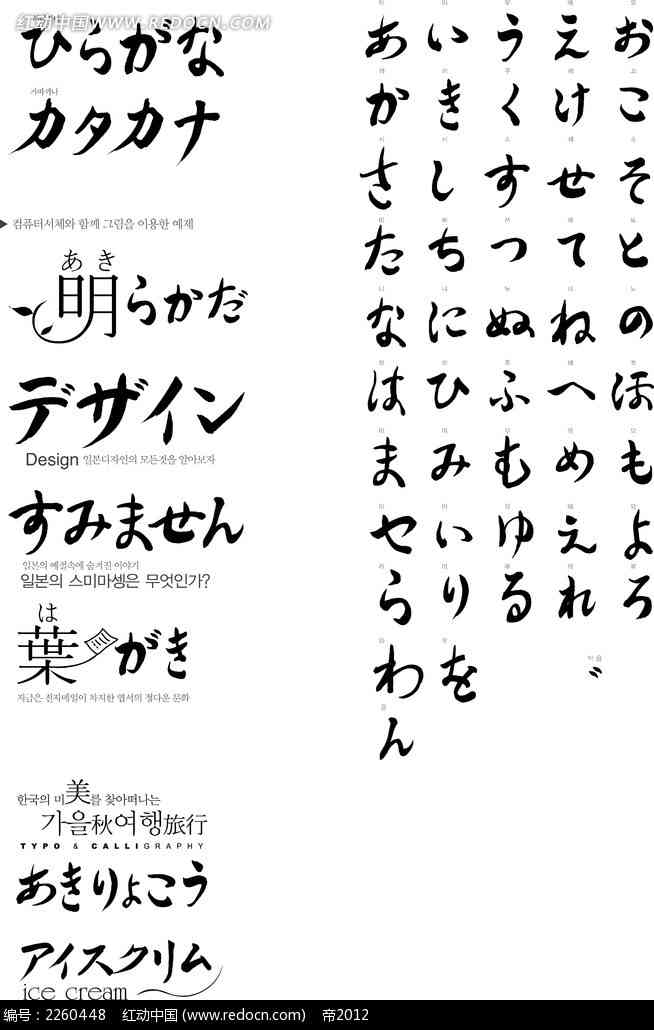 红动中国WWW.REDOCN.COM
ひらがな
가따까나
カタカナ
▶ 컴퓨터서체와 함께 그림을 이용한 예제
あき
明らかだ
デザイン
Design 일본디자인의 모든것을 알아보자
すみません
일본의 예절속에 숨겨진 이야기
일본의 스미마셍은 무엇인가?
は
葉がき
지금은 전자메일이 차지한 엽서의 정다운 문화
한국의 미美를 찾아떠나는
가을秋여행旅行
TYPO & CALLIGRAPHY
あきりょこう
アイスクリム
ice cream
あ い う え お
か き く け こ
さ し す せ そ
た ち つ て と
な に ぬ ね の
は ひ ふ へ ほ
ま み む め も
や い ゆ え よ
ら り る れ ろ
わ を ゛
ん
编号：2260448 红动中国 (www.redocn.com) 帝2012